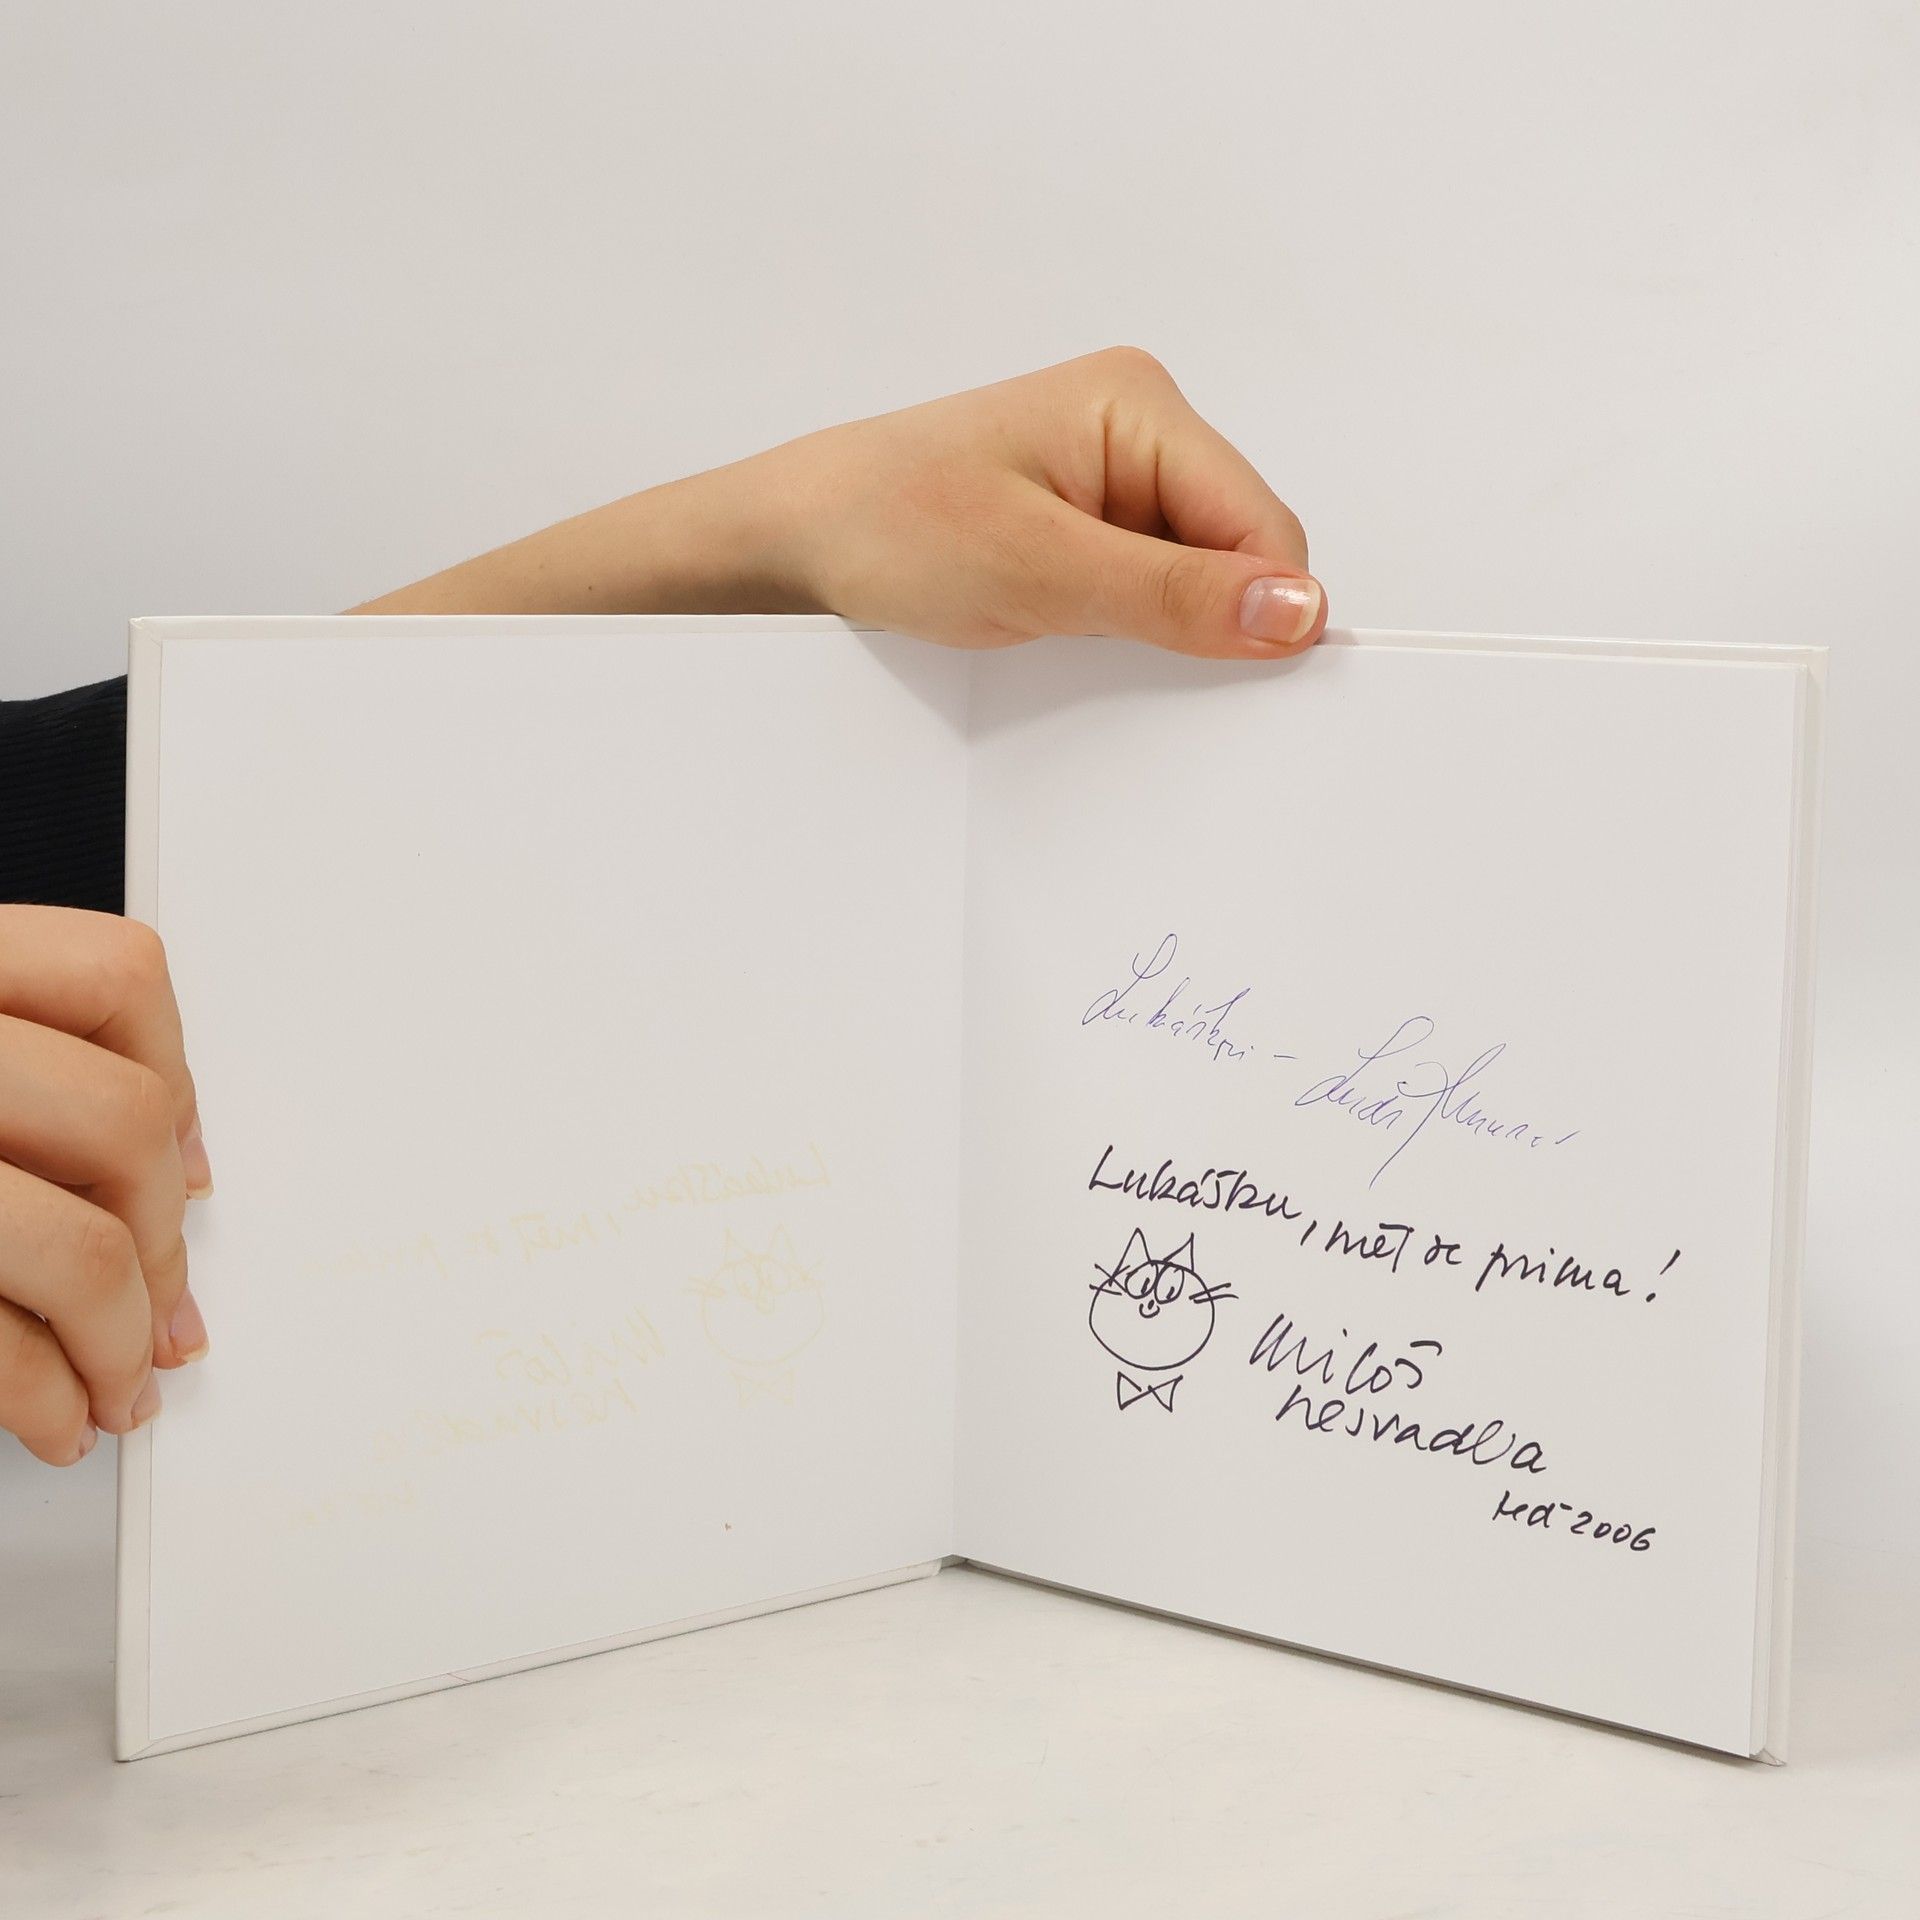 Lukáškovi –
Lukášku, měj se prima!
Miloš
Nesvadba
teď 2006